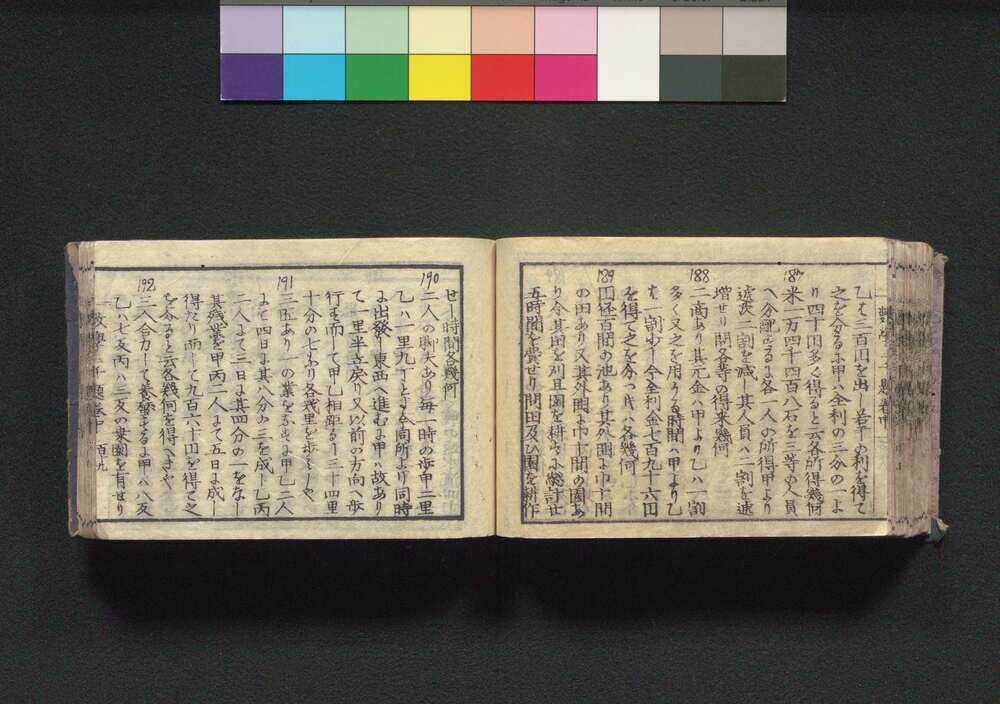 乙ハ三百円を出し若干の利を得て
之を分るに甲ハ全利の三分の一よ
り四十円多く得ると云各所得幾何
187
米一万四千四百八石を三等の人員
へ分配するに各一人の所得甲より
逓次二割を減し其人員ハ二割を逓
増せり問各等の得米幾何
188
二商あり其元金ハ甲より乙ハ一割
多く又之を用うる時間ハ甲より乙
ハ一割少し今全利金七百九十六円
を得て之を分つ片ハ各幾何
189
円径百間の池あり其外囲に巾十間
の田あり又其外囲に巾十間の園あ
り今其田を刈且園を耕すに総計廿
五時間を費せり問田及び園を耕作
せし時間各幾何
190
二人の脚夫あり毎一時の歩甲二里
乙ハ一里九丁とす今同所より同時
に出発し東西へ進むに甲ハ故あり
て一里半立戻り又以前の方向へ歩
行す而して甲乙相距る三十四里
十分の七なり各幾里を歩せしや
191
三匠あり一の業をなすに甲乙二人
にて四日に其八分の三を成し乙丙
二人にて三日に其四分の一をなし
其残業を甲丙二人にて五日に成し
得たり而して九百六十円を得て之
を分ると云各幾何を得へきや
192
三人合力して養蚕するに甲ハ八反
乙ハ七反丙ハ三反の桑園を有せり